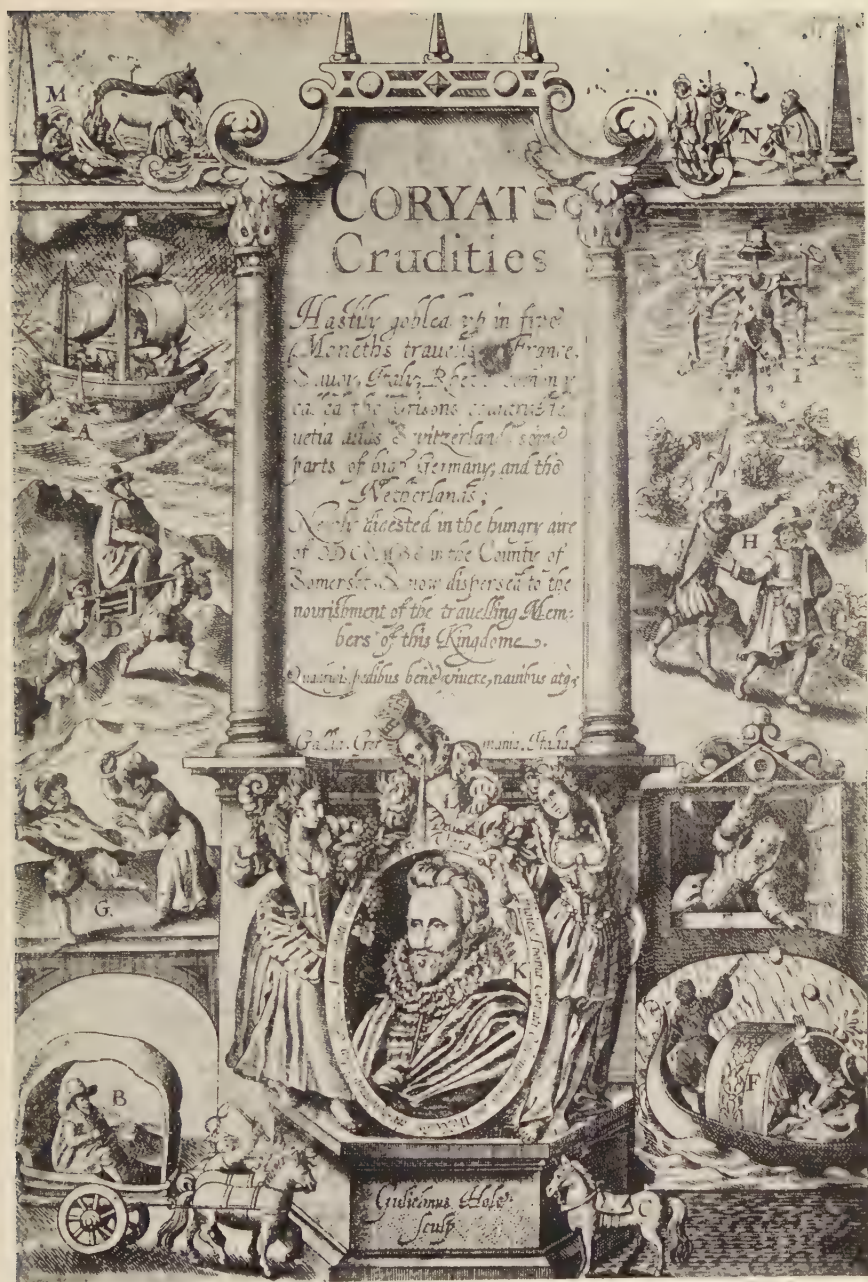 M
N
CORYATS
Crudities
Hastily gobled vp in five
Moneths travells France,
Savoy, Italy,
the Grisons
uetia aliàs Switzerland some
parts of high Germany, and the
Netherlands;
Newly digested in the hungry aire
of ODCOMBE in the County of
Somerset, & now dispersed to the
nourishment of the travelling Mem-
bers of this Kingdome.
Quadrigis, pedibus benè viuere, nauibus atq,
Gallia. Ger mania. Italia.
A
D
G
B
I
H
F
L
L
K
C
Gulielmus Hole
sculp